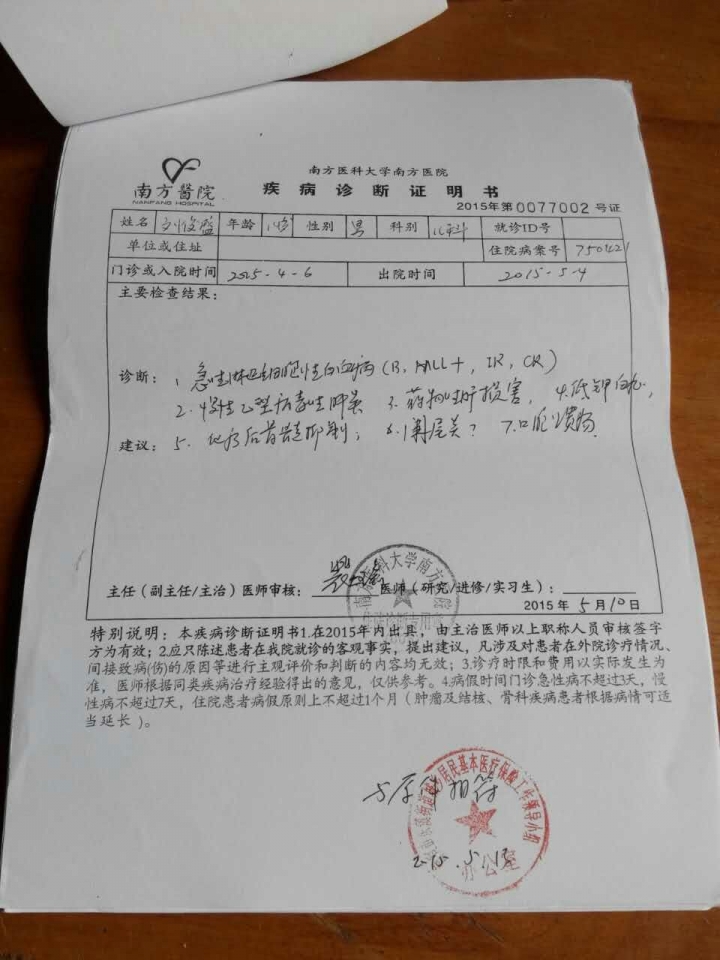 南方醫院
NANFANG HOSPITAL
南方医科大学南方医院
疾病诊断证明书
2015年第0077002号证
姓名 年龄 性别 男 科别 儿科 就诊ID号
单位或住址 住院病案号 750421
门诊或入院时间 2015-4-6 出院时间 2015-5-4
主要检查结果:
诊断: 1. 急性淋巴细胞性白血病(B, MLL+, IR, CR)
2. 慢性乙型病毒性肝炎 3. 药物性肝损害, 4. 低钾血症,
建议: 5. 化疗后骨髓抑制; 6. 阑尾炎? 7. 口腔溃疡.
主任(副主任/主治)医师审核: 医师(研究/进修/实习生):
2015年5月10日
特别说明:本疾病诊断证明书1.在2015年内出具,由主治医师以上职称人员审核签字
方为有效;2.应只陈述患者在我院就诊的客观事实,提出建议,凡涉及对患者在外院诊疗情况、
间接致病(伤)的原因等进行主观评价和判断的内容均无效;3.诊疗时限和费用以实际发生为
准,医师根据同类疾病治疗经验得出的意见,仅供参考。4.病假时间门诊急性病不超过3天,慢
性病不超过7天,住院患者病假原则上不超过1个月(肿瘤及结核、骨科疾病患者根据病情可适
当延长)。
与原件相符
居民基本医疗保险工作领导小组
办公室
2015.5.13